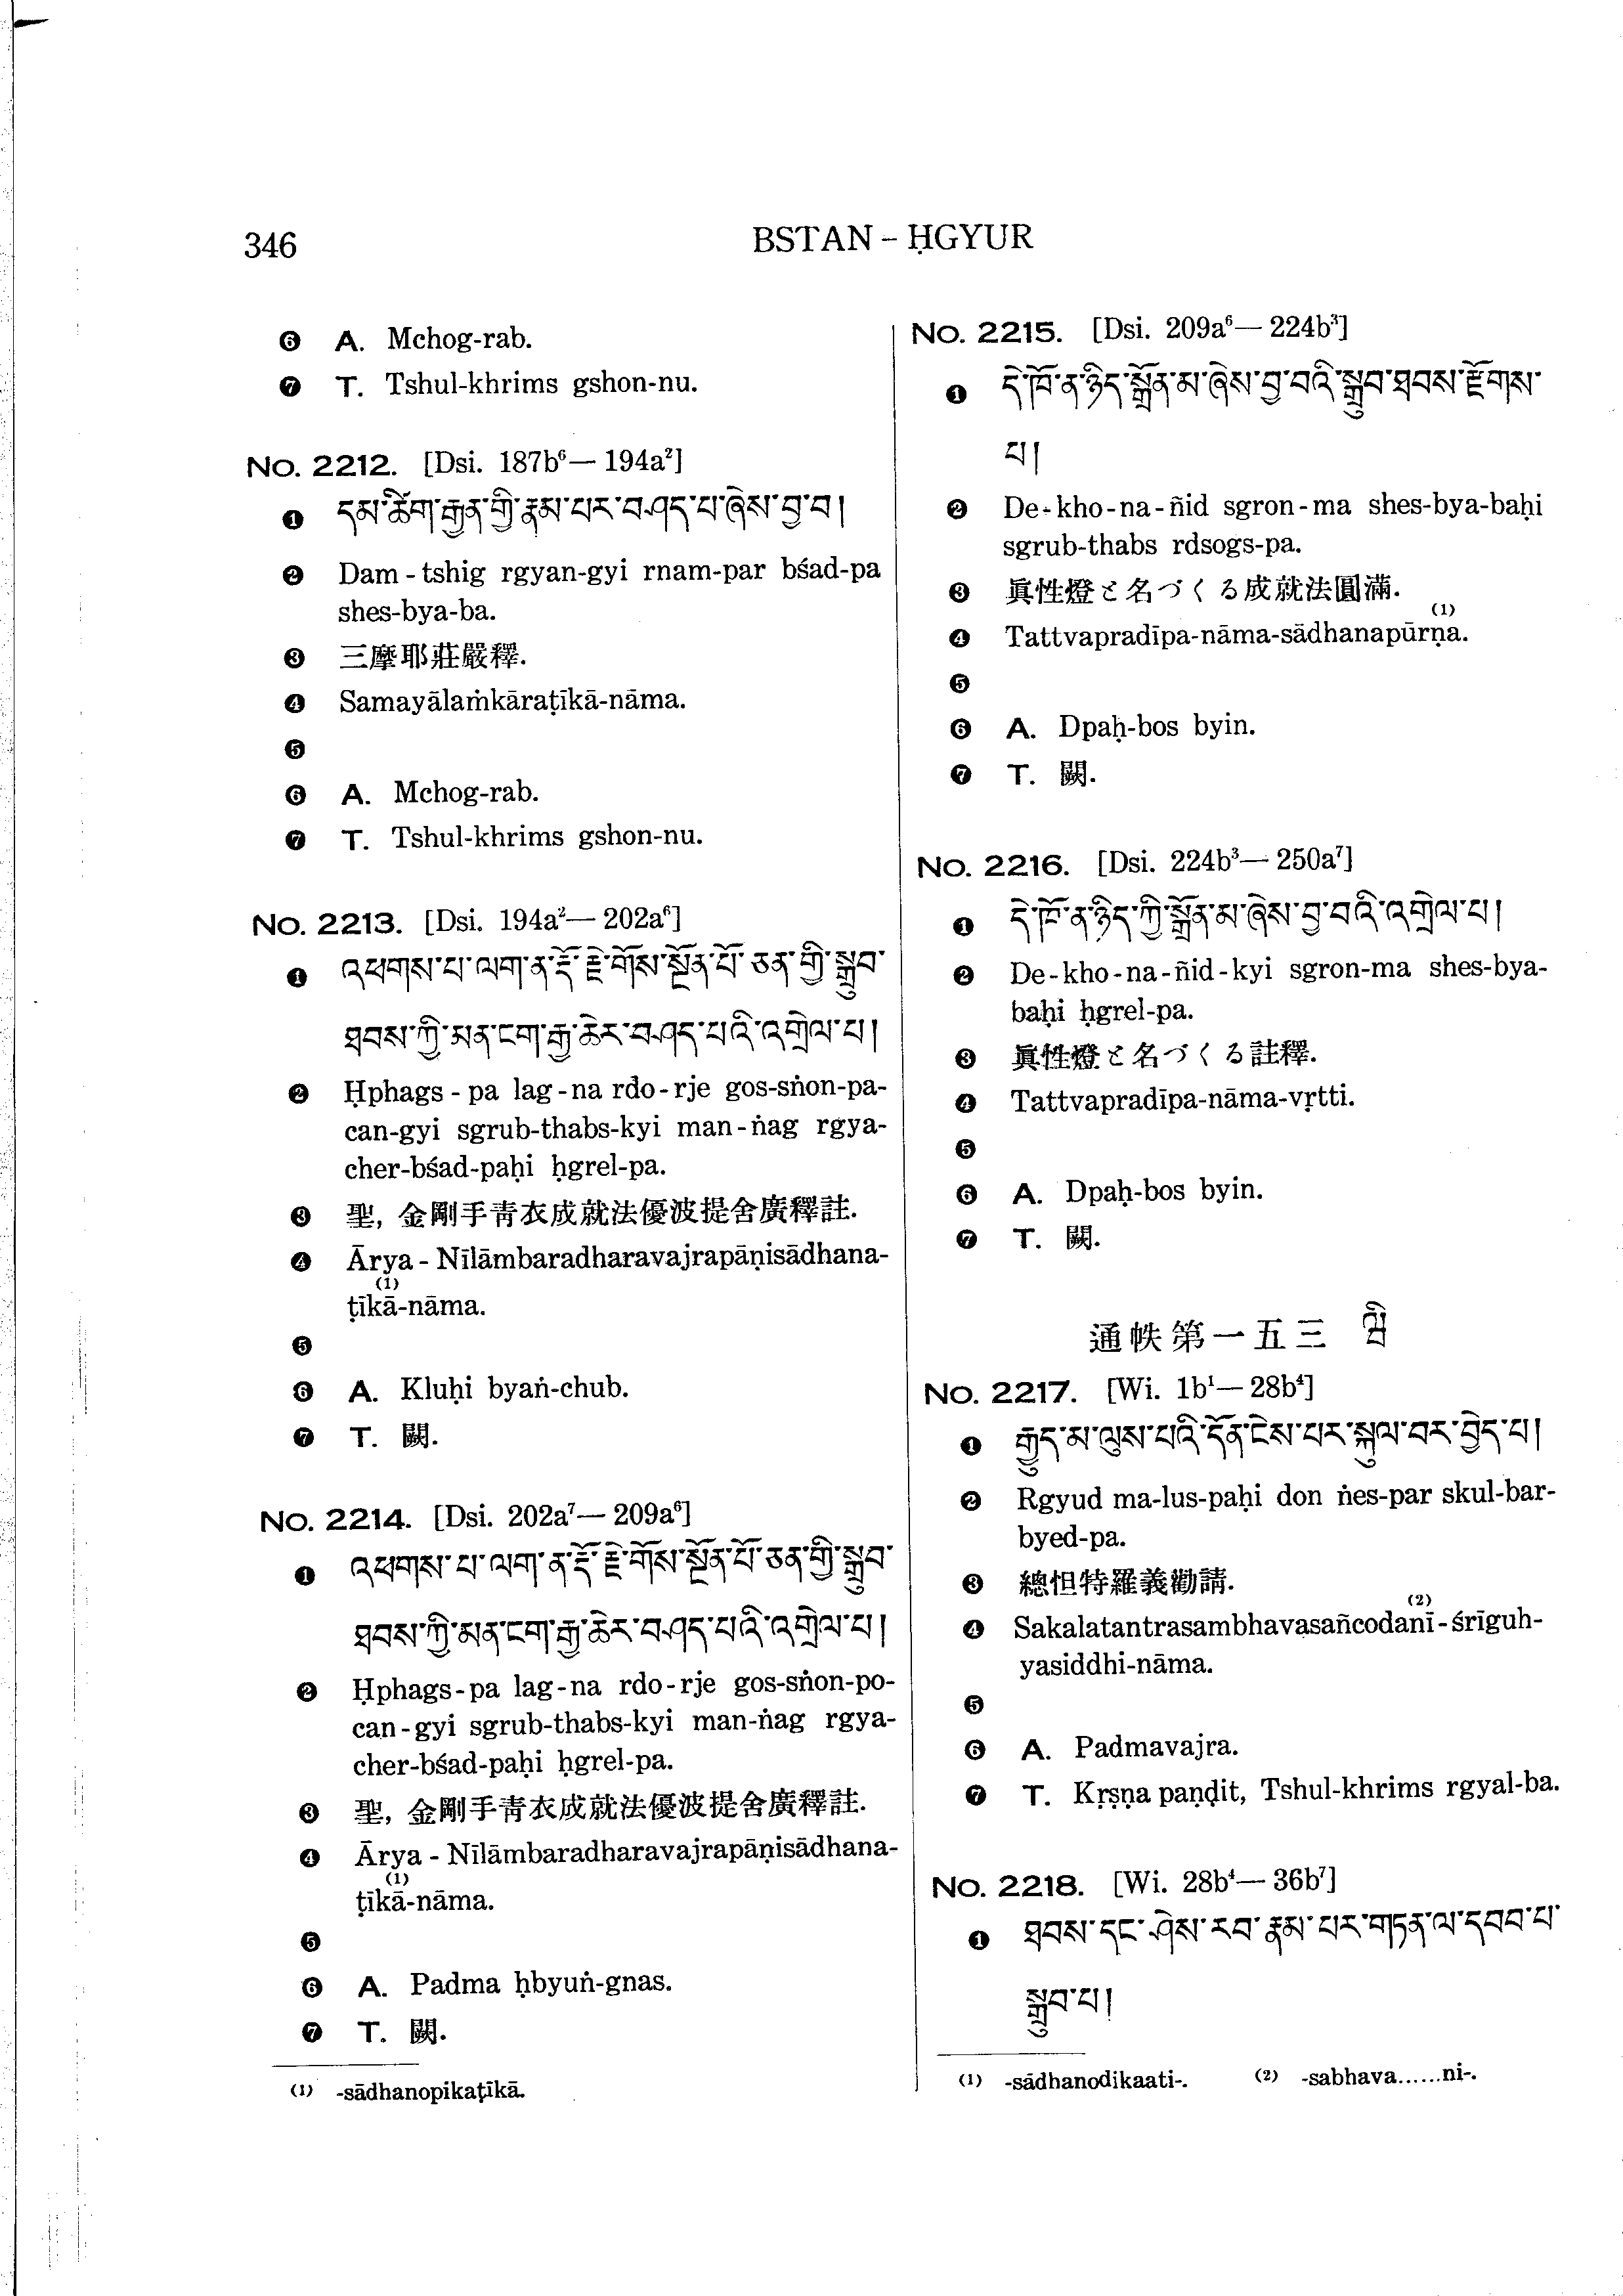 346
BSTAN – ḤGYUR
❻ A. Mchog-rab.
❼ T. Tshul-khrims gshon-nu.
No. 2212. [Dsi. 187b⁶— 194a²]
❶ དམ་ཚིག་རྒྱན་གྱི་རྣམ་པར་བཤད་པ་ཞེས་བྱ་བ།
❷ Dam-tshig rgyan-gyi rnam-par bśad-pa
shes-bya-ba.
❸ 三摩耶莊嚴釋.
❹ Samayālaṁkāraṭīkā-nāma.
❺
❻ A. Mchog-rab.
❼ T. Tshul-khrims gshon-nu.
No. 2213. [Dsi. 194a²— 202a⁶]
❶ འཕགས་པ་ལག་ན་རྡོ་རྗེ་གོས་སྔོན་པོ་ཅན་གྱི་སྒྲུབ་
ཐབས་ཀྱི་མན་ངག་རྒྱ་ཆེར་བཤད་པའི་འགྲེལ་པ།
❷ Ḥphags-pa lag-na rdo-rje gos-sṅon-pa-
can-gyi sgrub-thabs-kyi man-ṅag rgya-
cher-bśad-paḥi ḥgrel-pa.
❸ 聖, 金剛手靑衣成就法優波提舍廣釋註.
❹ Ārya-Nīlāmbaradharavajrapāṇisādhana-
(1)
ṭīkā-nāma.
❺
❻ A. Kluḥi byaṅ-chub.
❼ T. 闕.
No. 2214. [Dsi. 202a⁷— 209a⁶]
❶ འཕགས་པ་ལག་ན་རྡོ་རྗེ་གོས་སྔོན་པོ་ཅན་གྱི་སྒྲུབ་
ཐབས་ཀྱི་མན་ངག་རྒྱ་ཆེར་བཤད་པའི་འགྲེལ་པ།
❷ Ḥphags-pa lag-na rdo-rje gos-sṅon-po-
can-gyi sgrub-thabs-kyi man-ṅag rgya-
cher-bśad-paḥi ḥgrel-pa.
❸ 聖, 金剛手靑衣成就法優波提舍廣釋註.
❹ Ārya-Nīlāmbaradharavajrapāṇisādhana-
(1)
ṭīkā-nāma.
❺
❻ A. Padma ḥbyuṅ-gnas.
❼ T. 闕.
(1) -sādhanopikaṭīkā.
No. 2215. [Dsi. 209a⁶— 224b³]
❶ དེ་ཁོ་ན་ཉིད་སྒྲོན་མ་ཞེས་བྱ་བའི་སྒྲུབ་ཐབས་རྫོགས་
པ།
❷ De-kho-na-ñid sgron-ma shes-bya-baḥi
sgrub-thabs rdsogs-pa.
❸ 眞性燈と名づくる成就法圓滿.
(1)
❹ Tattvapradīpa-nāma-sādhanapūrṇa.
❺
❻ A. Dpaḥ-bos byin.
❼ T. 闕.
No. 2216. [Dsi. 224b³— 250a⁷]
❶ དེ་ཁོ་ན་ཉིད་ཀྱི་སྒྲོན་མ་ཞེས་བྱ་བའི་འགྲེལ་པ།
❷ De-kho-na-ñid-kyi sgron-ma shes-bya-
baḥi ḥgrel-pa.
❸ 眞性燈と名づくる註釋.
❹ Tattvapradīpa-nāma-vṛtti.
❺
❻ A. Dpaḥ-bos byin.
❼ T. 闕.
通帙第一五三 ཝི
No. 2217. [Wi. 1b¹— 28b⁴]
❶ རྒྱུད་མ་ལུས་པའི་དོན་ངེས་པར་སྐུལ་བར་བྱེད་པ།
❷ Rgyud ma-lus-paḥi don ṅes-par skul-bar-
byed-pa.
❸ 總怛特羅義勸請.
(2)
❹ Sakalatantrasambhavasañcodanī-śrīguh-
yasiddhi-nāma.
❺
❻ A. Padmavajra.
❼ T. Kṛṣṇa paṇḍit, Tshul-khrims rgyal-ba.
No. 2218. [Wi. 28b⁴— 36b⁷]
❶ ཐབས་དང་ཤེས་རབ་རྣམ་པར་གཏན་ལ་དབབ་པ་
སྒྲུབ་པ།
(1) -sādhanodikaati-. (2) -sabhava......ni-.